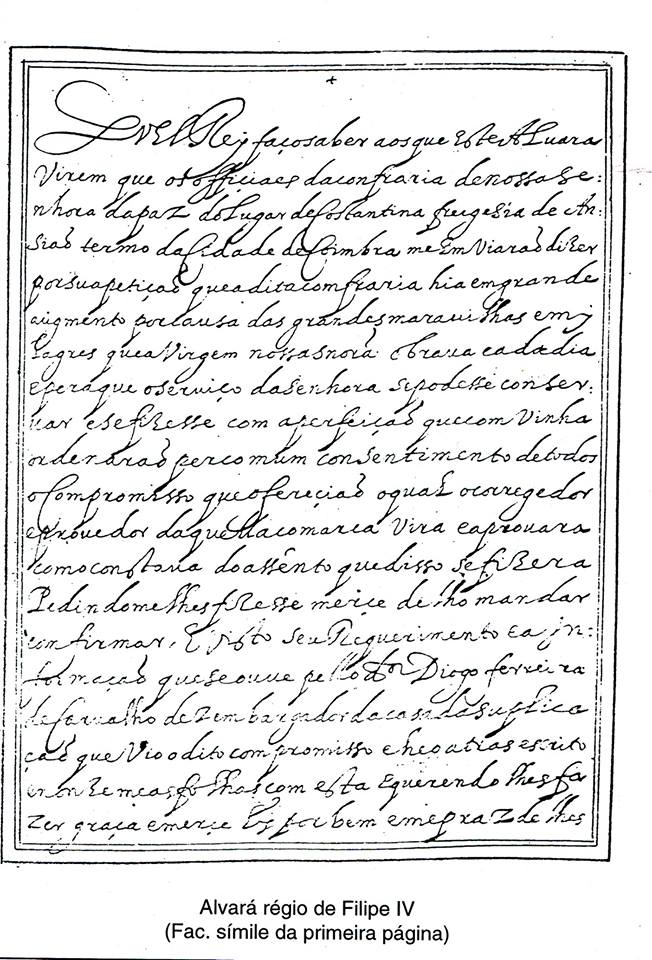 +
Eu ElRey faço saber aos que este Aluara
Virem que os officiaes da confraria de nossa se:
nhora da paz do Lugar de Costantina freigesia de An:
sião termo da Cidade de Coimbra me Em Viarão diZer
por sua petição que a dita comfraria hia em grande
augmento por causa das grandes maravilhas e mj
lagres que a Virgem nossa snorã obrava cada dia
e pera que o serviço da senhora se podesse conser:
uar e se fiZesse com a perfeição que com Vinha
ordenarão per comum consentimento de todos
o Compromisso que ofereçião o qual o corregedor
e provedor daquella comarca Vira e aprovara
como constava do assento que disso se fiZera
Pedindome lhes fiZesse merçe de lho mandar
confirmar, E Visto seu Requerimento e a jn:
formação que se ouve pello dor Diogo ferreira
de Carvalho deZembargador da casa da Suplica
ção que Vio o dito compromisso e he o atras escrito
em onZe meas folhas com esta E querendo lhes fa
Zer graça e merçe Ey por bem e me praZ de lhes
Alvará régio de Filipe IV
(Fac. símile da primeira página)